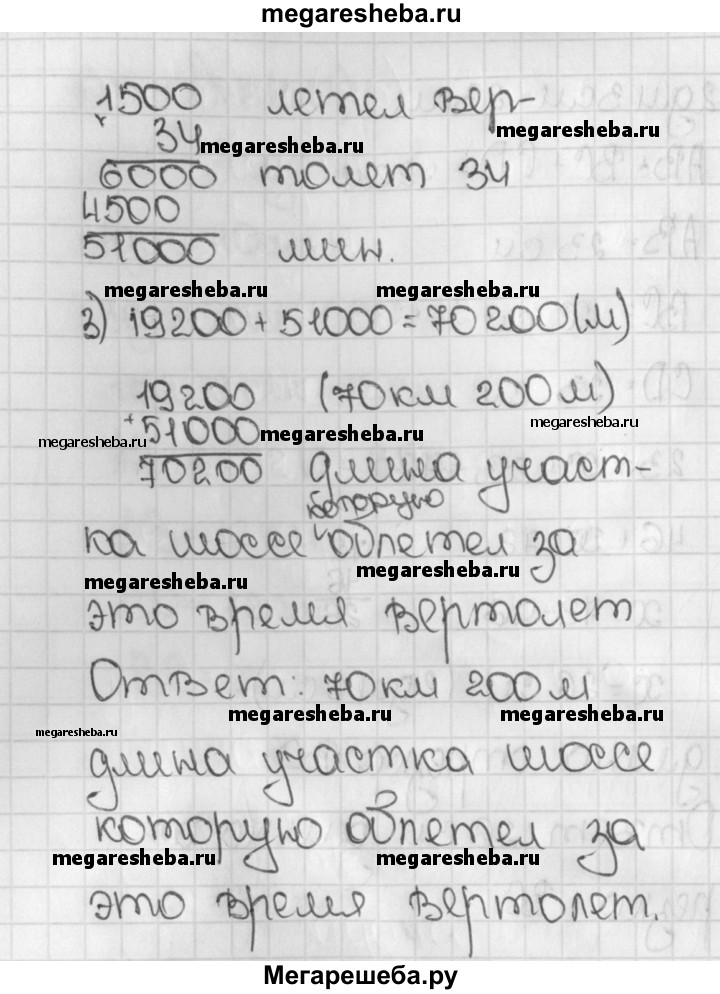 megaresheba.ru
1500 летел вер-
× 34 megaresheba.ru megaresheba.ru
6000 толет 34
4500
51000 мин.
megaresheba.ru megaresheba.ru
3) 19200 + 51000 = 70200 (м)
19200 (70 км 200 м)
megaresheba.ru + 51000 megaresheba.ru megaresheba.ru
70200 длина участ-
которую
ка шоссе облетел за
megaresheba.ru megaresheba.ru
это время вертолет
Ответ: 70 км 200 м
megaresheba.ru megaresheba.ru
megaresheba.ru
длина участка шоссе
которую облетел за
megaresheba.ru megaresheba.ru
это время вертолет.
Мегарешеба.ру